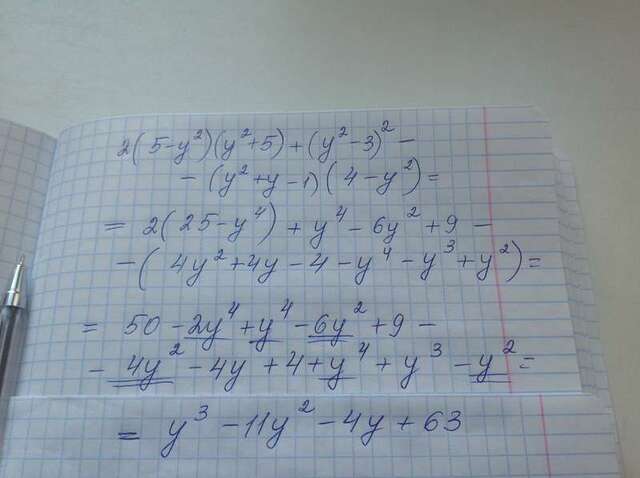 2(5-y²)(y²+5)+(y²-3)²-
-(y²+y-1)(4-y²)=
=2(25-y⁴)+y⁴-6y²+9-
-(4y²+4y-4-y⁴-y³+y²)=
=50-2y⁴+y⁴-6y²+9-
-4y²-4y+4+y⁴+y³-y²=
=y³-11y²-4y+63